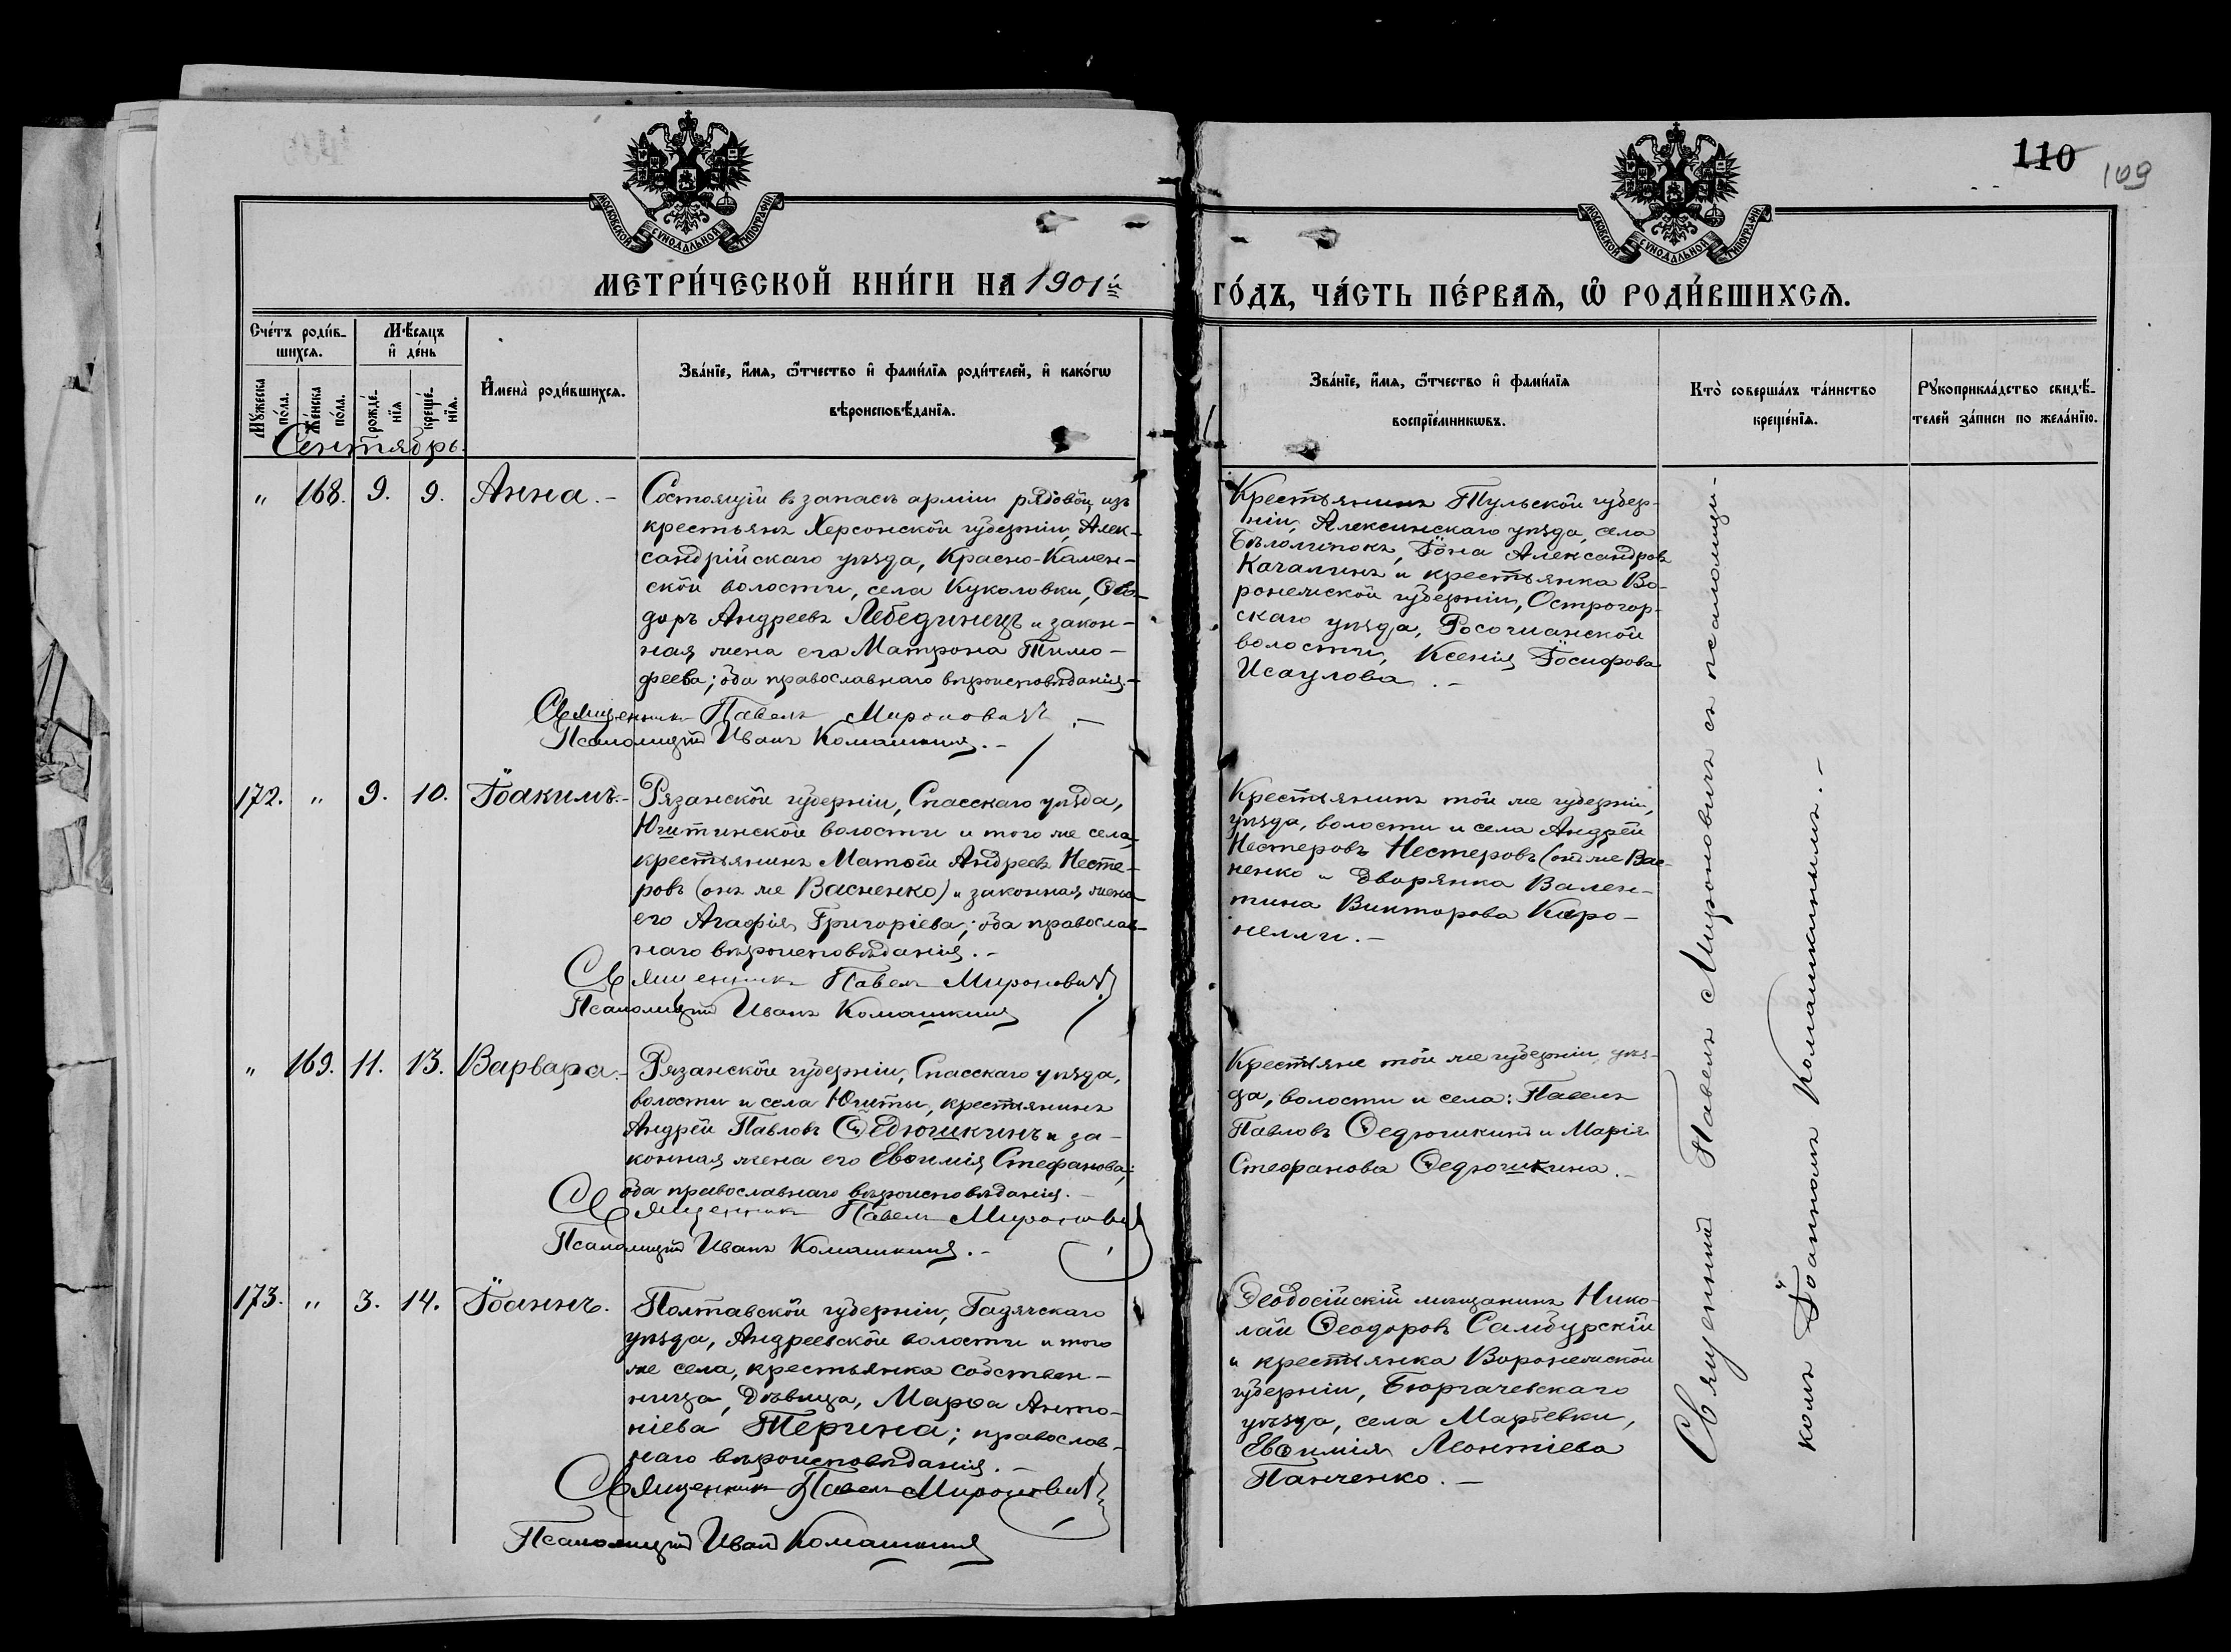 110
109
МОСКОВСКОЙ СУНОДАЛЬНОЙ ТИПОГРАФІИ
МОСКОВСКОЙ СУНОДАЛЬНОЙ ТИПОГРАФІИ
МЕТРИ́ЧЕСКОЙ КНИ́ГИ НА 1901й
ГО́ДЪ, ЧА́СТЬ ПЕ́РВАѦ, Ѡ҆ РОДИ́ВШИХСѦ.
Сче́тъ роди́в-
шихсѧ.
Мѣ́сѧцъ
и҆ де́нь
Мꙋ́жеска
по́ла.
Же́нска
по́ла.
рожде́-
нїѧ
креще́-
нїѧ.
И҆мена̀ роди́вшихсѧ.
Зва́нїе, и҆́мѧ, ѻ҆́тчество и҆ фами́лїѧ роди́телей, и҆ како́гѡ
вѣроисповѣ́данїѧ.
Зва́нїе, и҆́мѧ, ѻ҆́тчество и҆ фами́лїѧ
воспрїе́мникѡвъ.
Кто̀ соверша́лъ та́инство
креще́нїѧ.
Рꙋкоприкла́дство свидѣ́-
телей за́писи по жела́нїю.
Сентябрь.
" 168. 9. 9. Анна. -
Состоящій въ запасѣ арміи рядовой, изъ
крестьянъ Херсонской губерніи, Алек-
сандрійскаго уѣзда, Красно-Камен-
ской волости, села Куколовки, Ѳео-
доръ Андреевъ Лебединецъ и закон-
ная жена его Матрона Тимо-
феева; оба православнаго вѣроисповѣданія. -
Священникъ Павелъ Мироновичъ. -
Псаломщикъ Иванъ Комашкинъ. -
Крестьянинъ Тульской губер-
ніи, Алексинскаго уѣзда, села
Бѣлолипокъ, Іона Александровъ
Качалинъ и крестьянка Во-
ронежской губерніи, Острогор-
скаго уѣзда, Росошанской
волости, Ксенія Іосифова
Исаулова. -
172. " 9. 10. Іоакимъ. -
Рязанской губерніи, Спасскаго уѣзда,
Ижитинской волости и того же села,
крестьянинъ Матѳій Андреевъ Несте-
ровъ (онъ же Васненко) и законная жена
его Агафія Григоріева; оба православ-
наго вѣроисповѣданія. -
Священникъ Павелъ Мироновичъ
Псаломщикъ Иванъ Комашкинъ
Крестьянинъ той же губерніи,
уѣзда, волости и села Андрей
Нестеровъ Нестеровъ (онъ же Вас-
ненко и дворянка Вален-
тина Викторова Каро-
нелли. -
" 169. 11. 13. Варвара. -
Рязанской губерніи, Спасскаго уѣзда,
волости и села Ижиты, крестьянинъ
Андрей Павловъ Ѳедюшкинъ и за-
конная жена его Евѳимія Стефанова;
оба православнаго вѣроисповѣданія. -
Священникъ Павелъ Мироновичъ
Псаломщикъ Иванъ Комашкинъ. -
Крестьяне той же губерніи, уѣз-
да, волости и села: Павелъ
Павловъ Ѳедюшкинъ и Марія
Стефанова Ѳедюшкина. -
173. " 3. 14. Іоаннъ.
Полтавской губерніи, Гадячскаго
уѣзда, Андреевской волости и того
же села, крестьянка собствен-
ница, дѣвица, Марѳа Анто-
ніева Терина; православ-
наго вѣроисповѣданія. -
Священникъ Павелъ Мироновичъ
Псаломщикъ Иванъ Комашкинъ
Ѳеодосійскій мѣщанинъ Нико-
лай Ѳеодоровъ Самбурскій
и крестьянка Воронежской
губерніи, Бюргачевскаго
уѣзда, села Марьевки,
Евѳимія Леонтіева
Панченко. -
Священникъ Павелъ Мироновичъ съ псаломщи-
комъ Іоанномъ Комашкинымъ. -